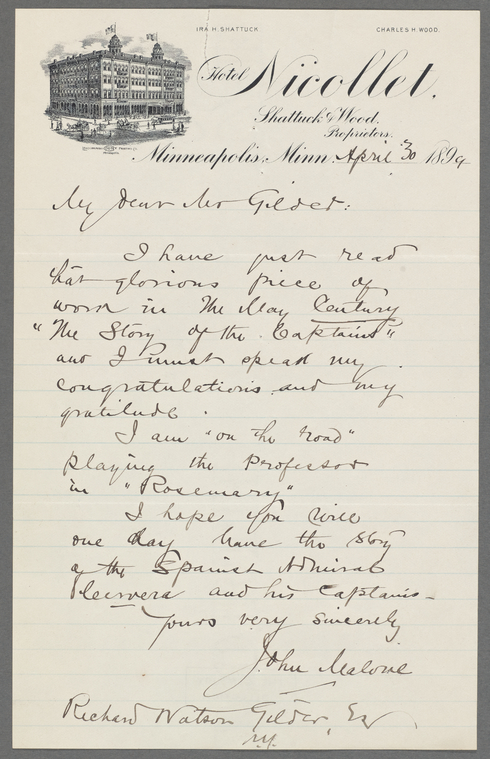 IRA H. SHATTUCK.
CHARLES H. WOOD.
Hotel Nicollet.
Shattuck & Wood.
Proprietors.
Minneapolis, Minn. April 30 1899
My Dear Mr Gilder:
I have just read
that glorious piece of
work in The May Century
"The Story of the Captains"
and I must speak my
congratulations and my
gratitude.
I am "on the road"
playing the Professor
in "Rosemary"
I hope you will
one day have the story
of the Spanish Admiral
and his Captains-
Yours very sincerely
John Malone
Richard Watson Gilder, Esq
N.Y.